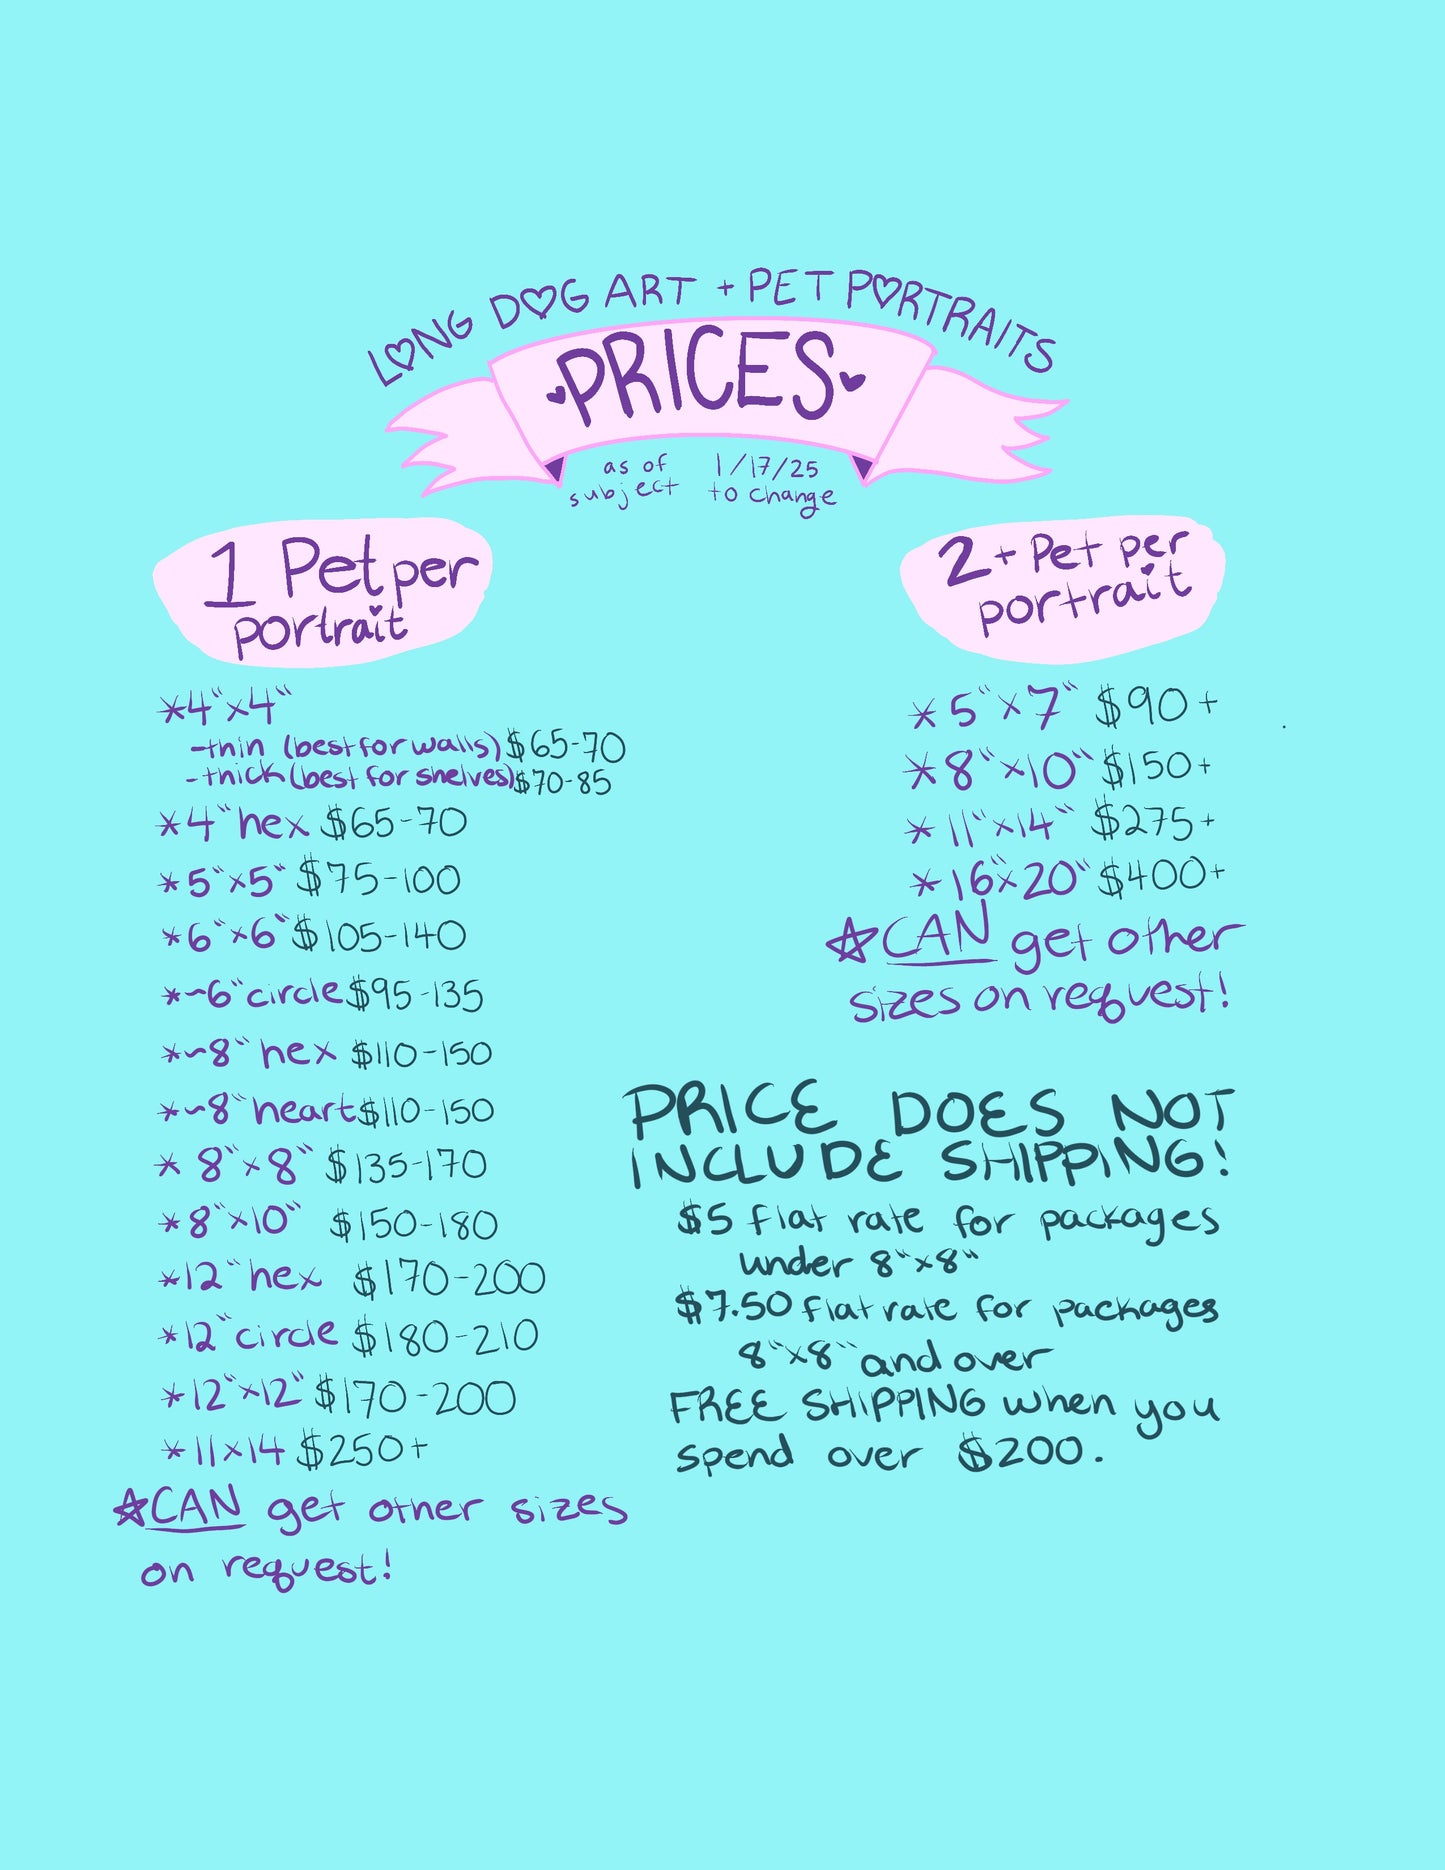 LONG DOG ART + PET PORTRAITS
PRICES
as of 1/17/25
subject to change
1 Pet per
portrait
*4"x4"
-thin (best for walls) $65-70
-thick (best for shelves) $70-85
*4" hex $65-70
*5"x5" $75-100
*6"x6" $105-140
*~6" circle $95-135
*~8" hex $110-150
*~8" heart $110-150
* 8"x8" $135-170
*8"x10" $150-180
*12" hex $170-200
*12" circle $180-210
*12"x12" $170-200
*11x14 $250+
☆CAN get other sizes
on request!
2+ Pet per
portrait
*5"x7" $90+
*8"x10" $150+
*11"x14" $275+
*16"x20" $400+
☆CAN get other
sizes on request!
PRICE DOES NOT
INCLUDE SHIPPING!
$5 flat rate for packages
under 8"x8"
$7.50 flat rate for packages
8"x8" and over
FREE SHIPPING when you
spend over $200.